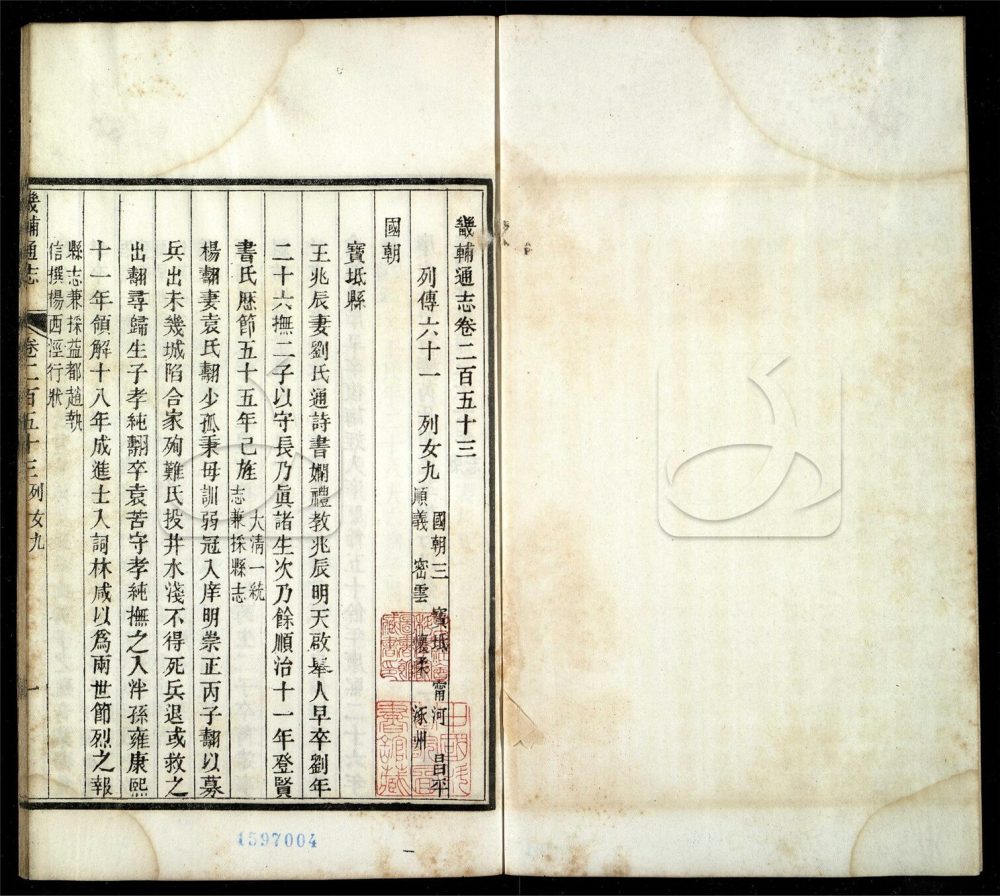 畿輔通志卷二百五十三
列傳六十一 列女九
國朝三 寶坻 甯河 昌平
順義 密雲 懷柔 涿州
國朝
寶坻縣
王兆辰妻劉氏通詩書嫻禮教兆辰明天啟舉人早卒劉年
二十六撫二子以守長乃眞諸生次乃餘順治十一年登賢
書氏歷節五十五年已旌
大清一統
志兼採縣志
楊翻妻袁氏翻少孤秉母訓弱冠入庠明崇正丙子翻以募
兵出未幾城陷合家殉難氏投井水淺不得死兵退或救之
出翻尋歸生子孝純翻卒袁苦守孝純撫之入泮孫雍康熙
十一年領解十八年成進士入詞林咸以爲兩世節烈之報
縣志兼採益都趙執
信撰楊西涇行狀
畿輔通志
卷二百五十三 列女九
一
1597004